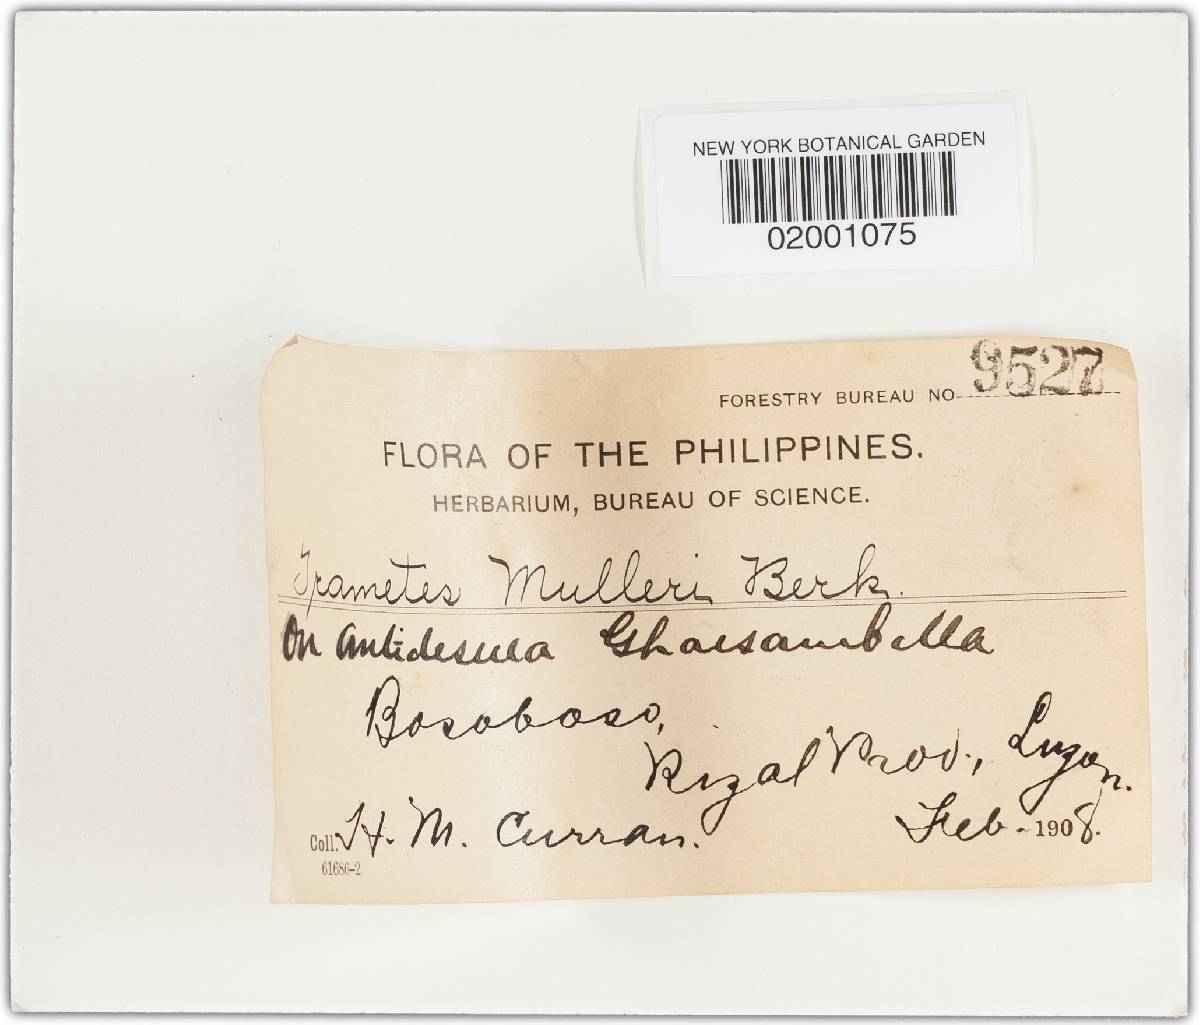 NEW YORK BOTANICAL GARDEN
02001075
FORESTRY BUREAU NO 9527
FLORA OF THE PHILIPPINES.
HERBARIUM, BUREAU OF SCIENCE.
Trametes Mulleri Berk.
On Antidesma Ghaesambilla
Bosoboso,
Rizal Prov., Luzon.
Coll. H. M. Curran. Feb. 1908.
61686-2